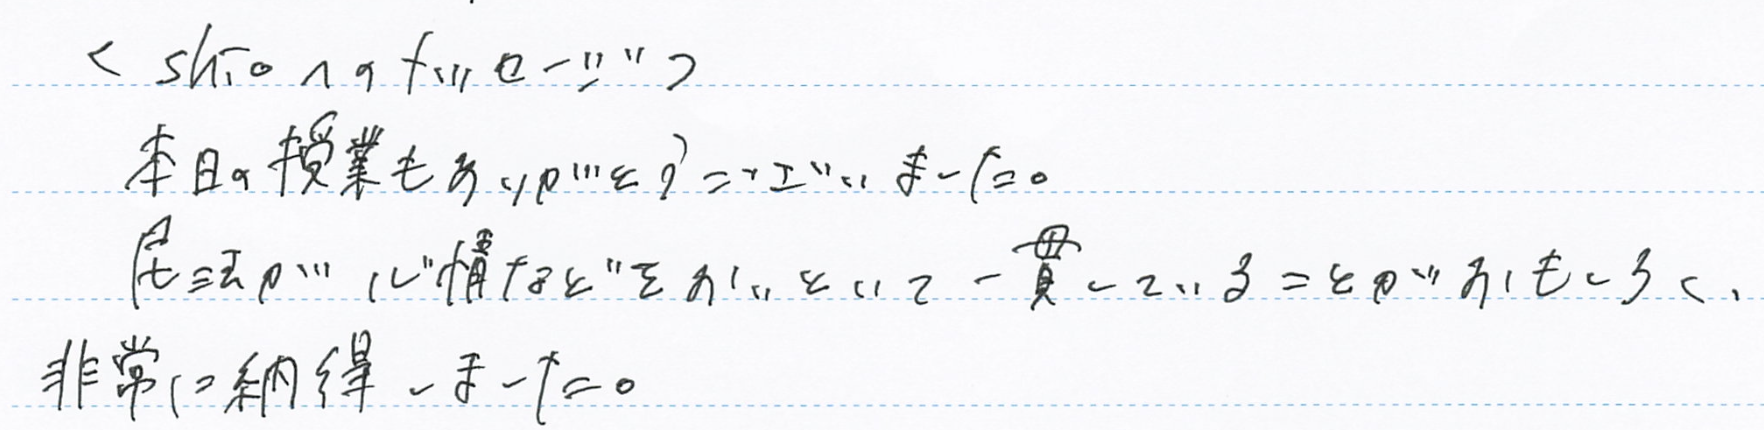 <shioへのメッセージ>
本日の授業もありがとうございました。
民法が心情などをおいといて一貫していることがおもしろく、
非常に納得しました。